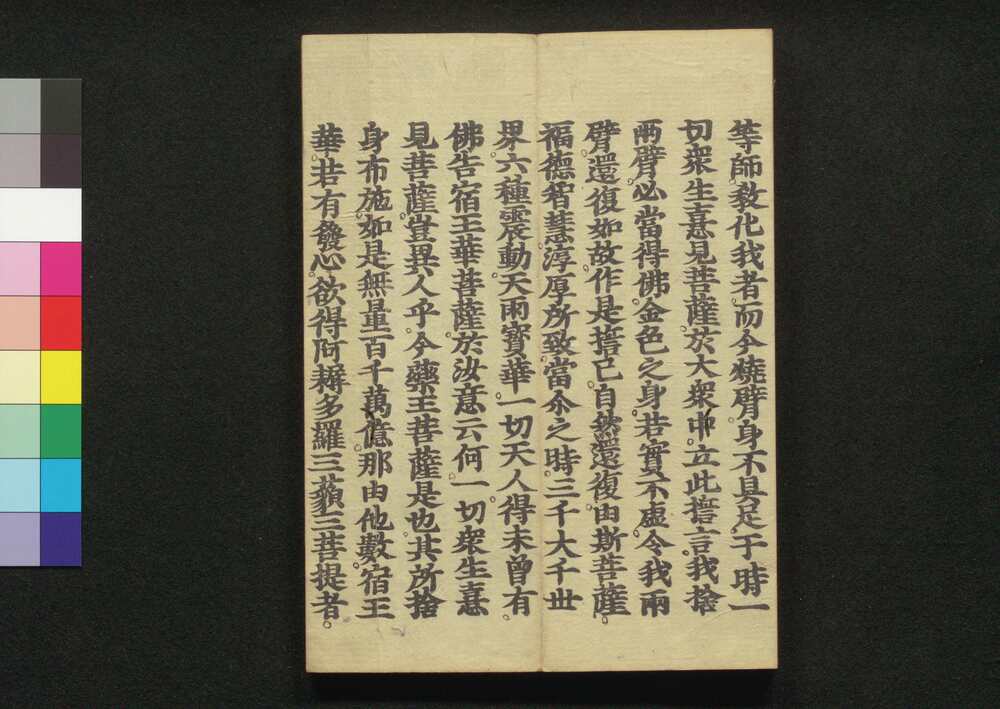 等師教化我者而今燒臂身不具足于時一
切衆生憙見菩薩於大衆中立此擔言我捨
兩臂必當得佛金色之身若實不虛令我兩
臂還復如故作是擔已自然還復由斯菩薩
福德智慧淳厚所致當尒之時三千大千世
界六種震動天雨寶華一切天人得未曾有
佛告宿王華菩薩於汝意云何一切衆生憙
見菩薩豈異人乎今藥王菩薩是也其所捨
身布施如是無量百千萬億那由他數宿王
華若有發心欲得阿耨多羅三藐三菩提者